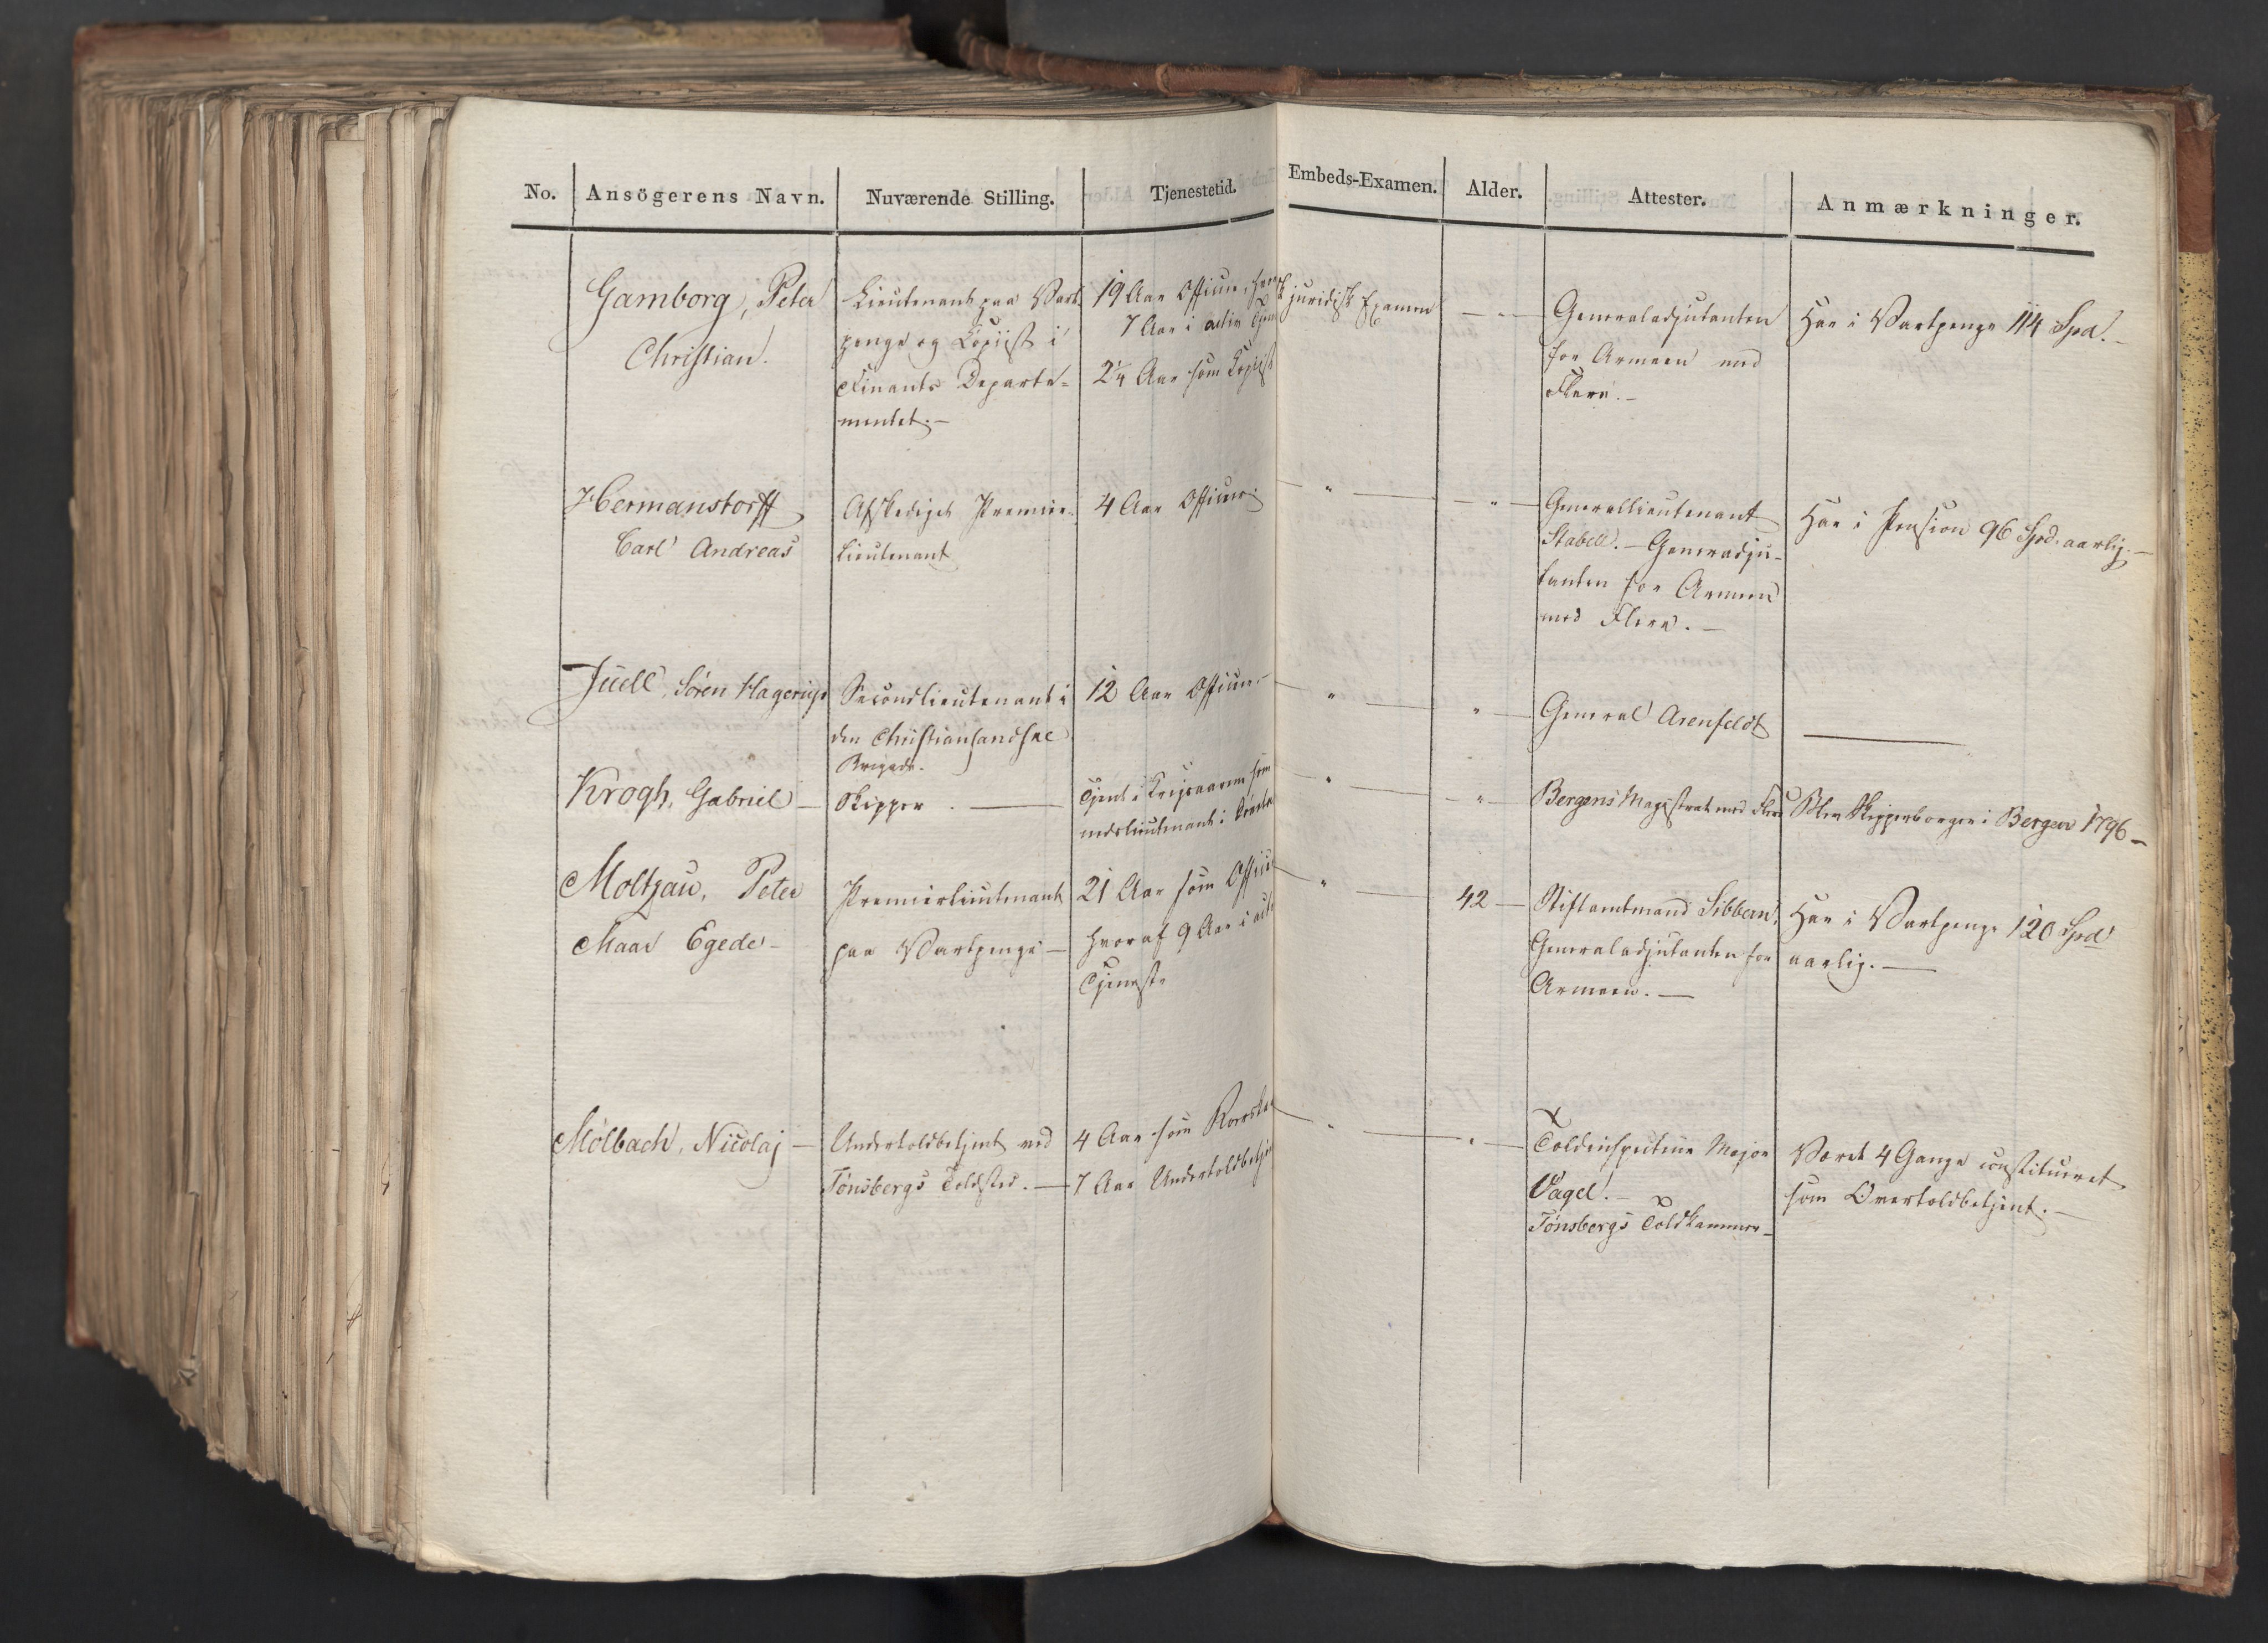 No. Ansögerens Navn. Nuværende Stilling. Tjenestetid. Embeds-Examen. Alder. Attester. Anmærkninger.
Gamborg, Peter
Christian.
Lieutenant paa Vart
penge og Copiist i
Finants Departe-
mentet.—
19 Aar Officier, hvoraf
7 Aar i activ Tjen
2¼ Aar som Copiist
juridisk Examen
— " —
Generaladjutanten
for Armeen med
Flere.—
Har i Vartpenge 114 Spd.—
Hermanstorff,
Carl Andreas
Afskediget Premier-
lieutenant
4 Aar Officier.
— " —
— " —
Generallieutenant
Stabell.— Generadju-
tanten for Armeen
med Flere.—
Har i Pension 96 Spd. aarlig.—
Juell, Sören Hagerup
Secondlieutenant i
den Christiansandske
Brigade.
12 Aar Officier.—
— " —
" —
General Arenfeldt
—
Krogh, Gabriel —
Skipper. —
Tjent i Krigsaarene som
maanedslieutenant i
— " —
— " —
Bergens Magistrat med Flere
Blev Skipperborger i Bergen 1796—
Moltzau, Peter
Maar Egede—
Premierlieutenant
paa Vartpenge—
21 Aar som Officier
hvoraf 9 Aar i activ
Tjeneste
— " —
42 —
Stiftamtmand Sibbern,
Generaladjutanten for
Armeen.—
Har i Vartpenge 120 Spd
aarlig.—
Mölbach, Nicolaj —
Undertoldbetjent ved
Tönsbergs Toldsted.—
4 Aar som Rorskar
7 Aar Undertoldbetjen
— " —
" —
Toldinspecteur Major
Vagel.—
Tönsbergs Toldkammer—
Været 4 Gange constitueret
som Overtoldbetjent.—